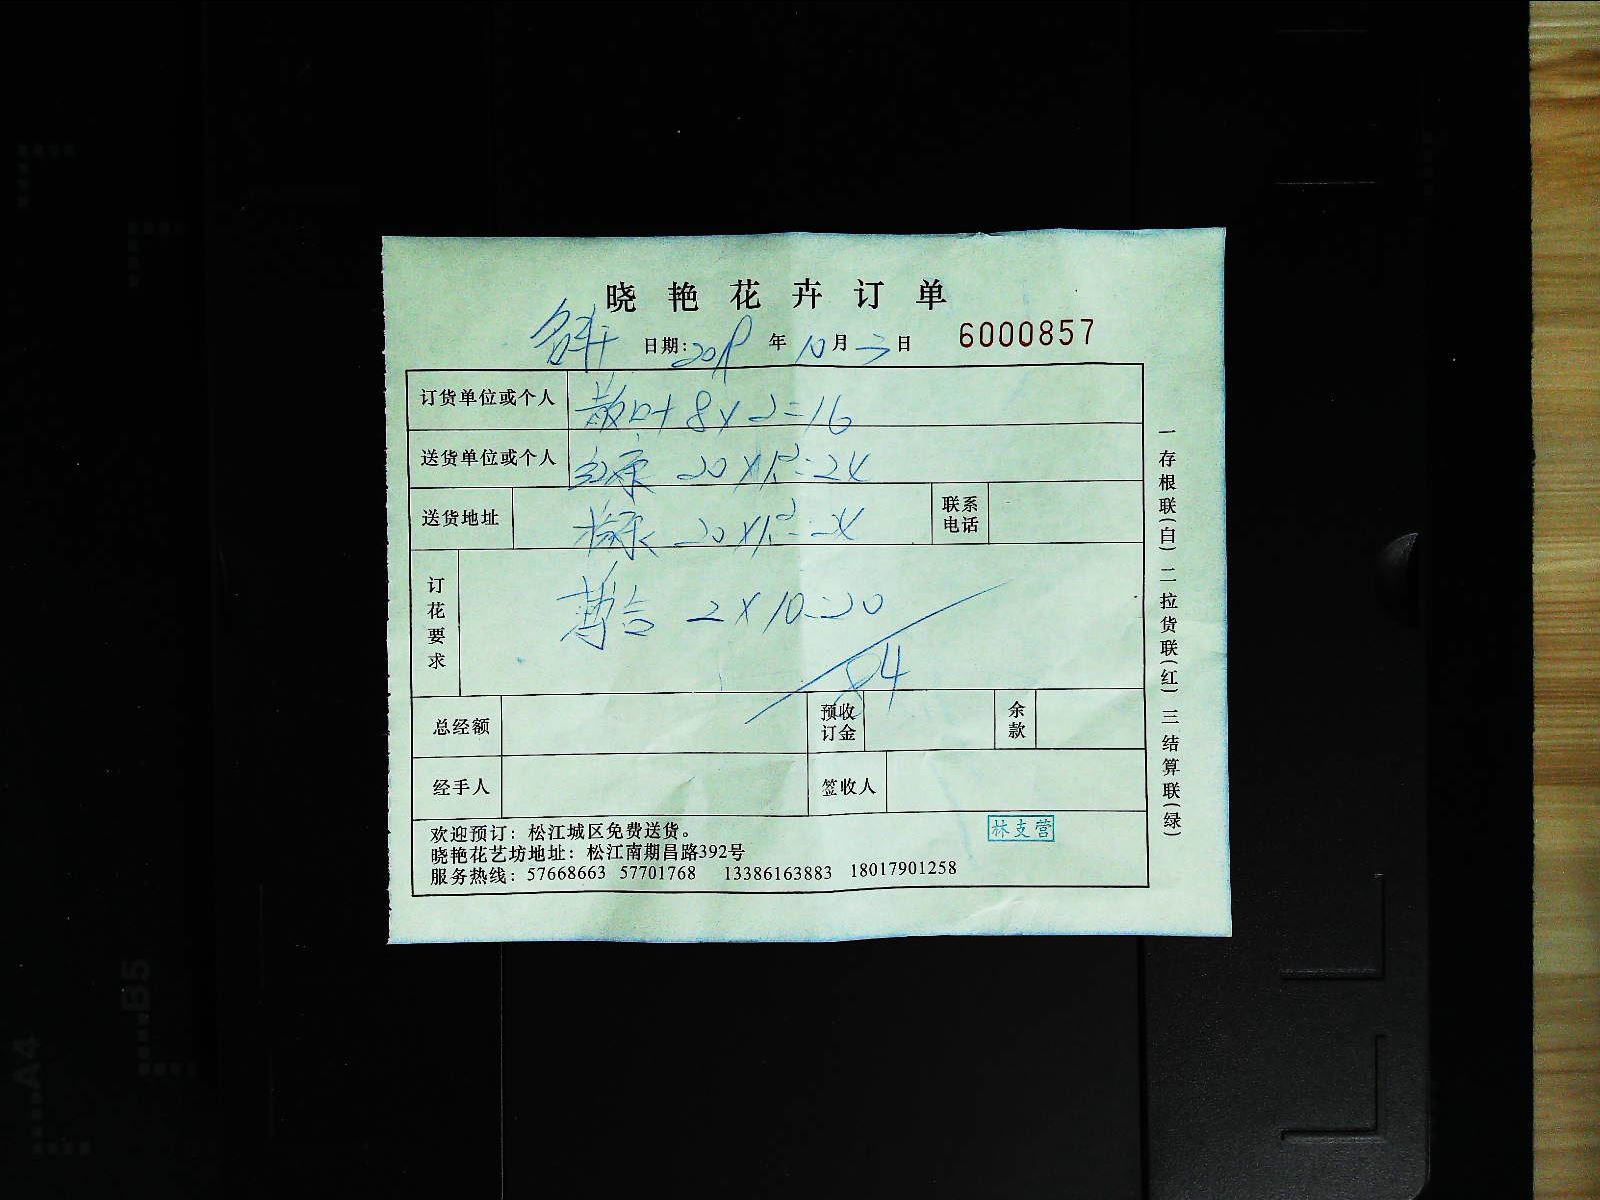 晓艳花卉订单
日期: 2018年10月三日 6000857
订货单位或个人 散叶 8×2=16
送货单位或个人 红康 20×1.2=24
送货地址 20×1.2=24 联系电话
订花要求 2×10=20
84
总经额 预收订金 余款
经手人 签收人
欢迎预订：松江城区免费送货。
晓艳花艺坊地址：松江南期昌路392号
服务热线：57668663 57701768 13386163883 18017901258
林支营
一存根联(白) 二拉货联(红) 三结算联(绿)
B5
A4